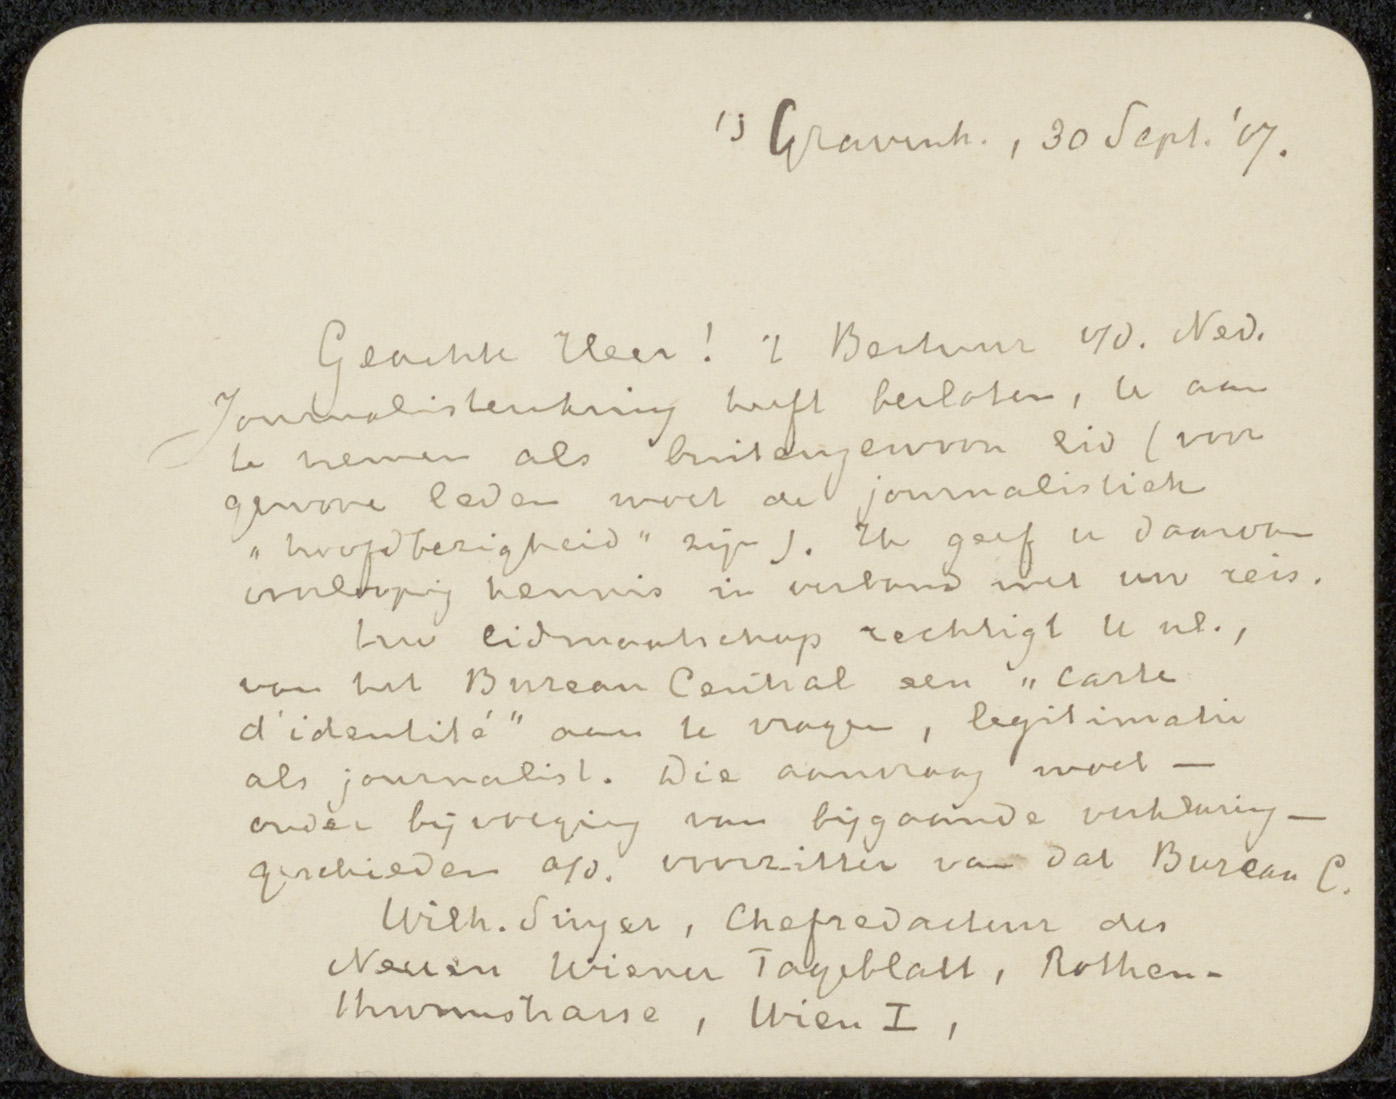 's Gravenh., 30 Sept. '07.
Geachte Heer! 't Bestuur v/d. Ned.
Journalistenkring heeft besloten, U aan
te nemen als buitengewoon lid (voor
gewone leden moet de journalistiek
„hoofdbezigheid" zijn). Ik geef U daarvan
voorloopig kennis in verband met uw reis.
Uw lidmaatschap rechtigt U nl.,
van het Bureau Central een „carte
d'identité" aan te vragen, legitimatie
als journalist. Die aanvraag moet —
onder bijvoeging van bijgaande verklaring —
geschieden a/d. voorzitter van dat Bureau C.
Wilh. Singer, Chefredacteur des
Neuen Wiener Tageblatt, Rothen-
thurmstrasse, Wien I,